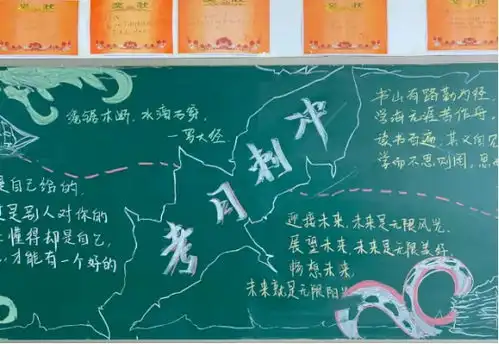 奖状
奖状
奖状
奖状
奖状
绳锯木断，水滴石穿
—罗大经
是自己给的
是别人对你的
懂得却是自己
才能有一个好的
考月刺冲
书山有路勤为径
学海无涯苦作舟
读书百遍，其义自见
学而不思则罔，思
迎接未来，未来是无限风光
展望未来，未来是无限美好
畅想未来
未来就是无限阳光